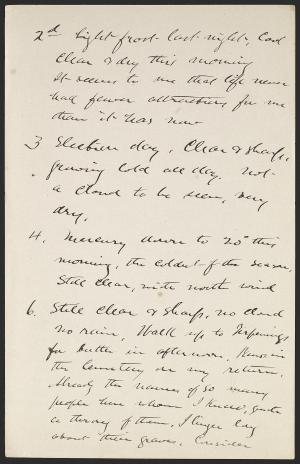 2d Light frost last night, Cool
Clear & dry this morning
It seems to me that life never
had fewer attractions for me
than it has now
3 Election day, Clear & sharp,
growing cold all day. Not
a cloud to be seen, very
dry.
4. Mercury down to 20° this
morning, the coldest of the season,
Still clear, with north wind
6. Still clear & sharp, no cloud
no rain, Walk up to Terpenings
for butter in afternoon. Pause in
the Cemetery on my return.
Already the names of so many
people here whom I knew, quite
a throng of them, I linger long
about their graves. Consider